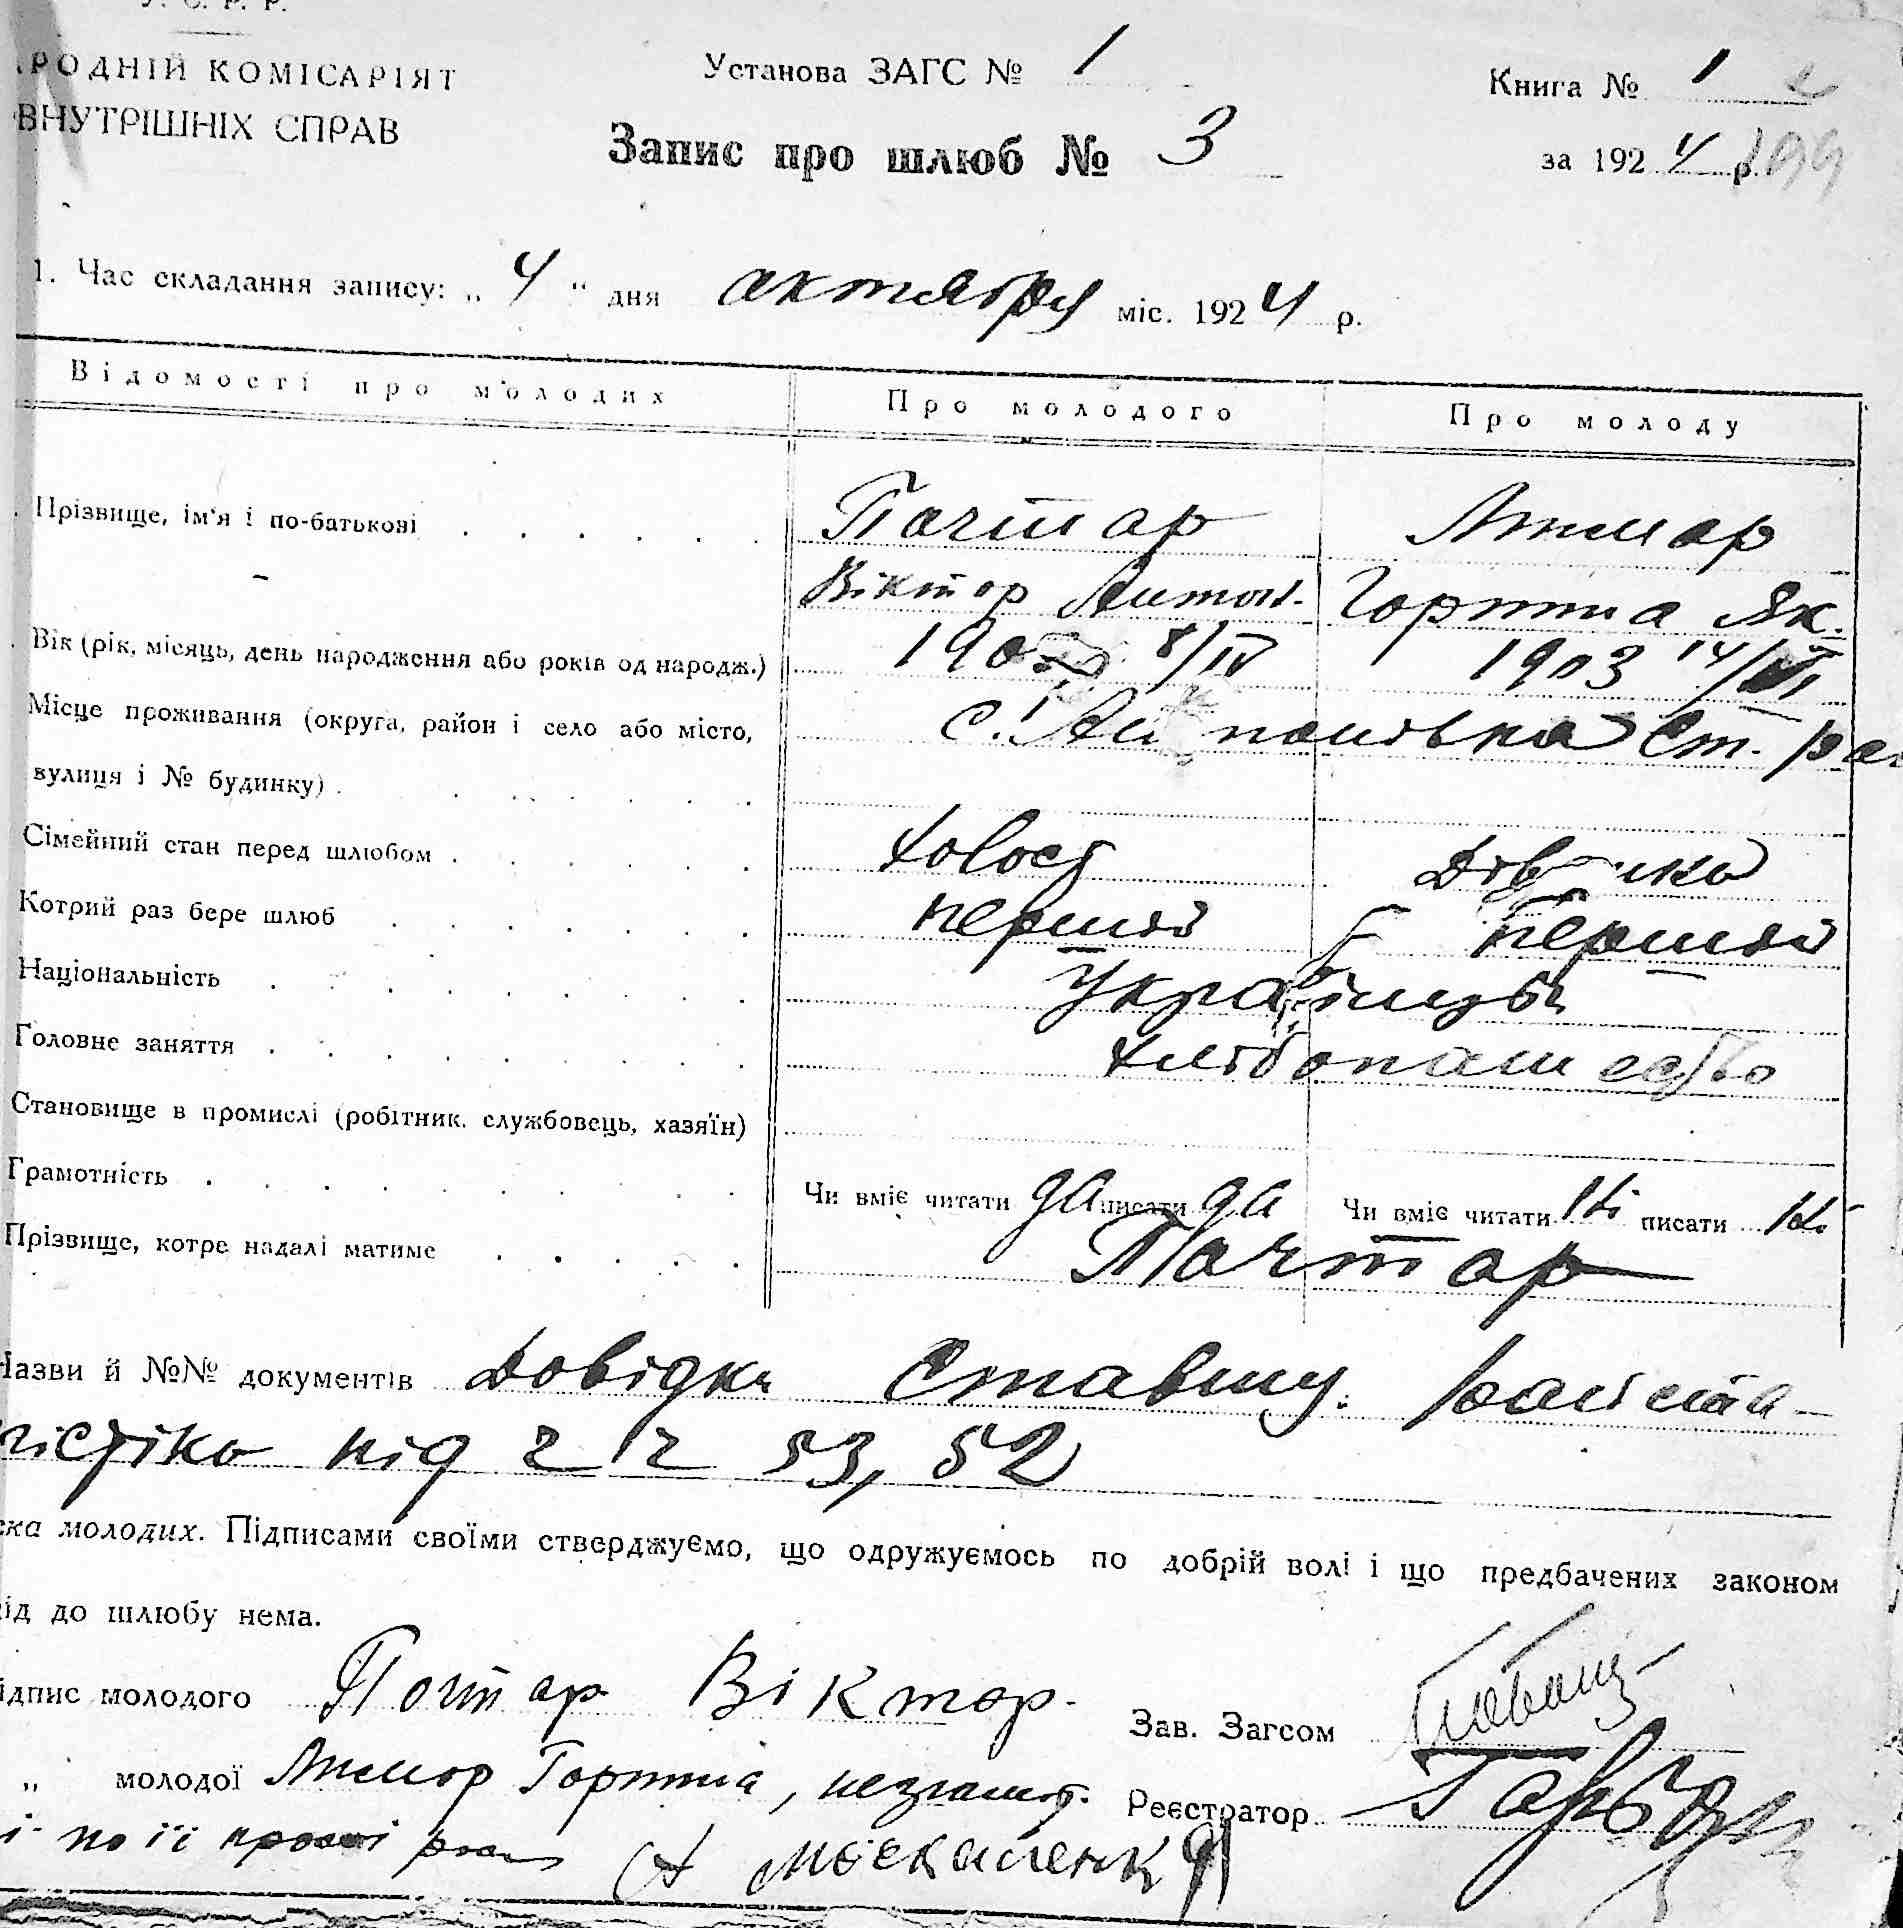 У. С. Р. Р.
РОДНІЙ КОМІСАРІЯТ
ВНУТРІШНІХ СПРАВ
Установа ЗАГС № 1
Книга № 1
Запис про шлюб № 3
за 1924 р. 199
1. Час складання запису: „4“ дня октября міс. 1924 р.
Відомості про молодих Про молодого Про молоду
Прізвище, ім'я і по-батькові Почтар
Віктор Антон. Горпина Як.
Вік (рік, місяць, день народження або років од народж.) 8/IV 1903 14/VI
Місце проживання (округа, район і село або місто, с. Ст.
вулиця і № будинку)
Сімейний стан перед шлюбом холост дівчина
Котрий раз бере шлюб перший перший
Національність Українці
Головне заняття хлібопашество
Становище в промислі (робітник, службовець, хазяїн)
Грамотність Чи вміє читати да писати да Чи вміє читати ні писати ні
Прізвище, котре надалі матиме Почтар
Назви й №№ документів Довідки Ставищ. райста-
тістіка під ч ч 53, 52
ска молодих. Підписами своїми стверджуємо, що одружуємось по добрій волі і що предбачених законом
від до шлюбу нема.
ідпис молодого Почтар Віктор.
Зав. Загсом
„ молодої Горпина, неграмот.
Реєстратор
і по її просьбі А Москаленко